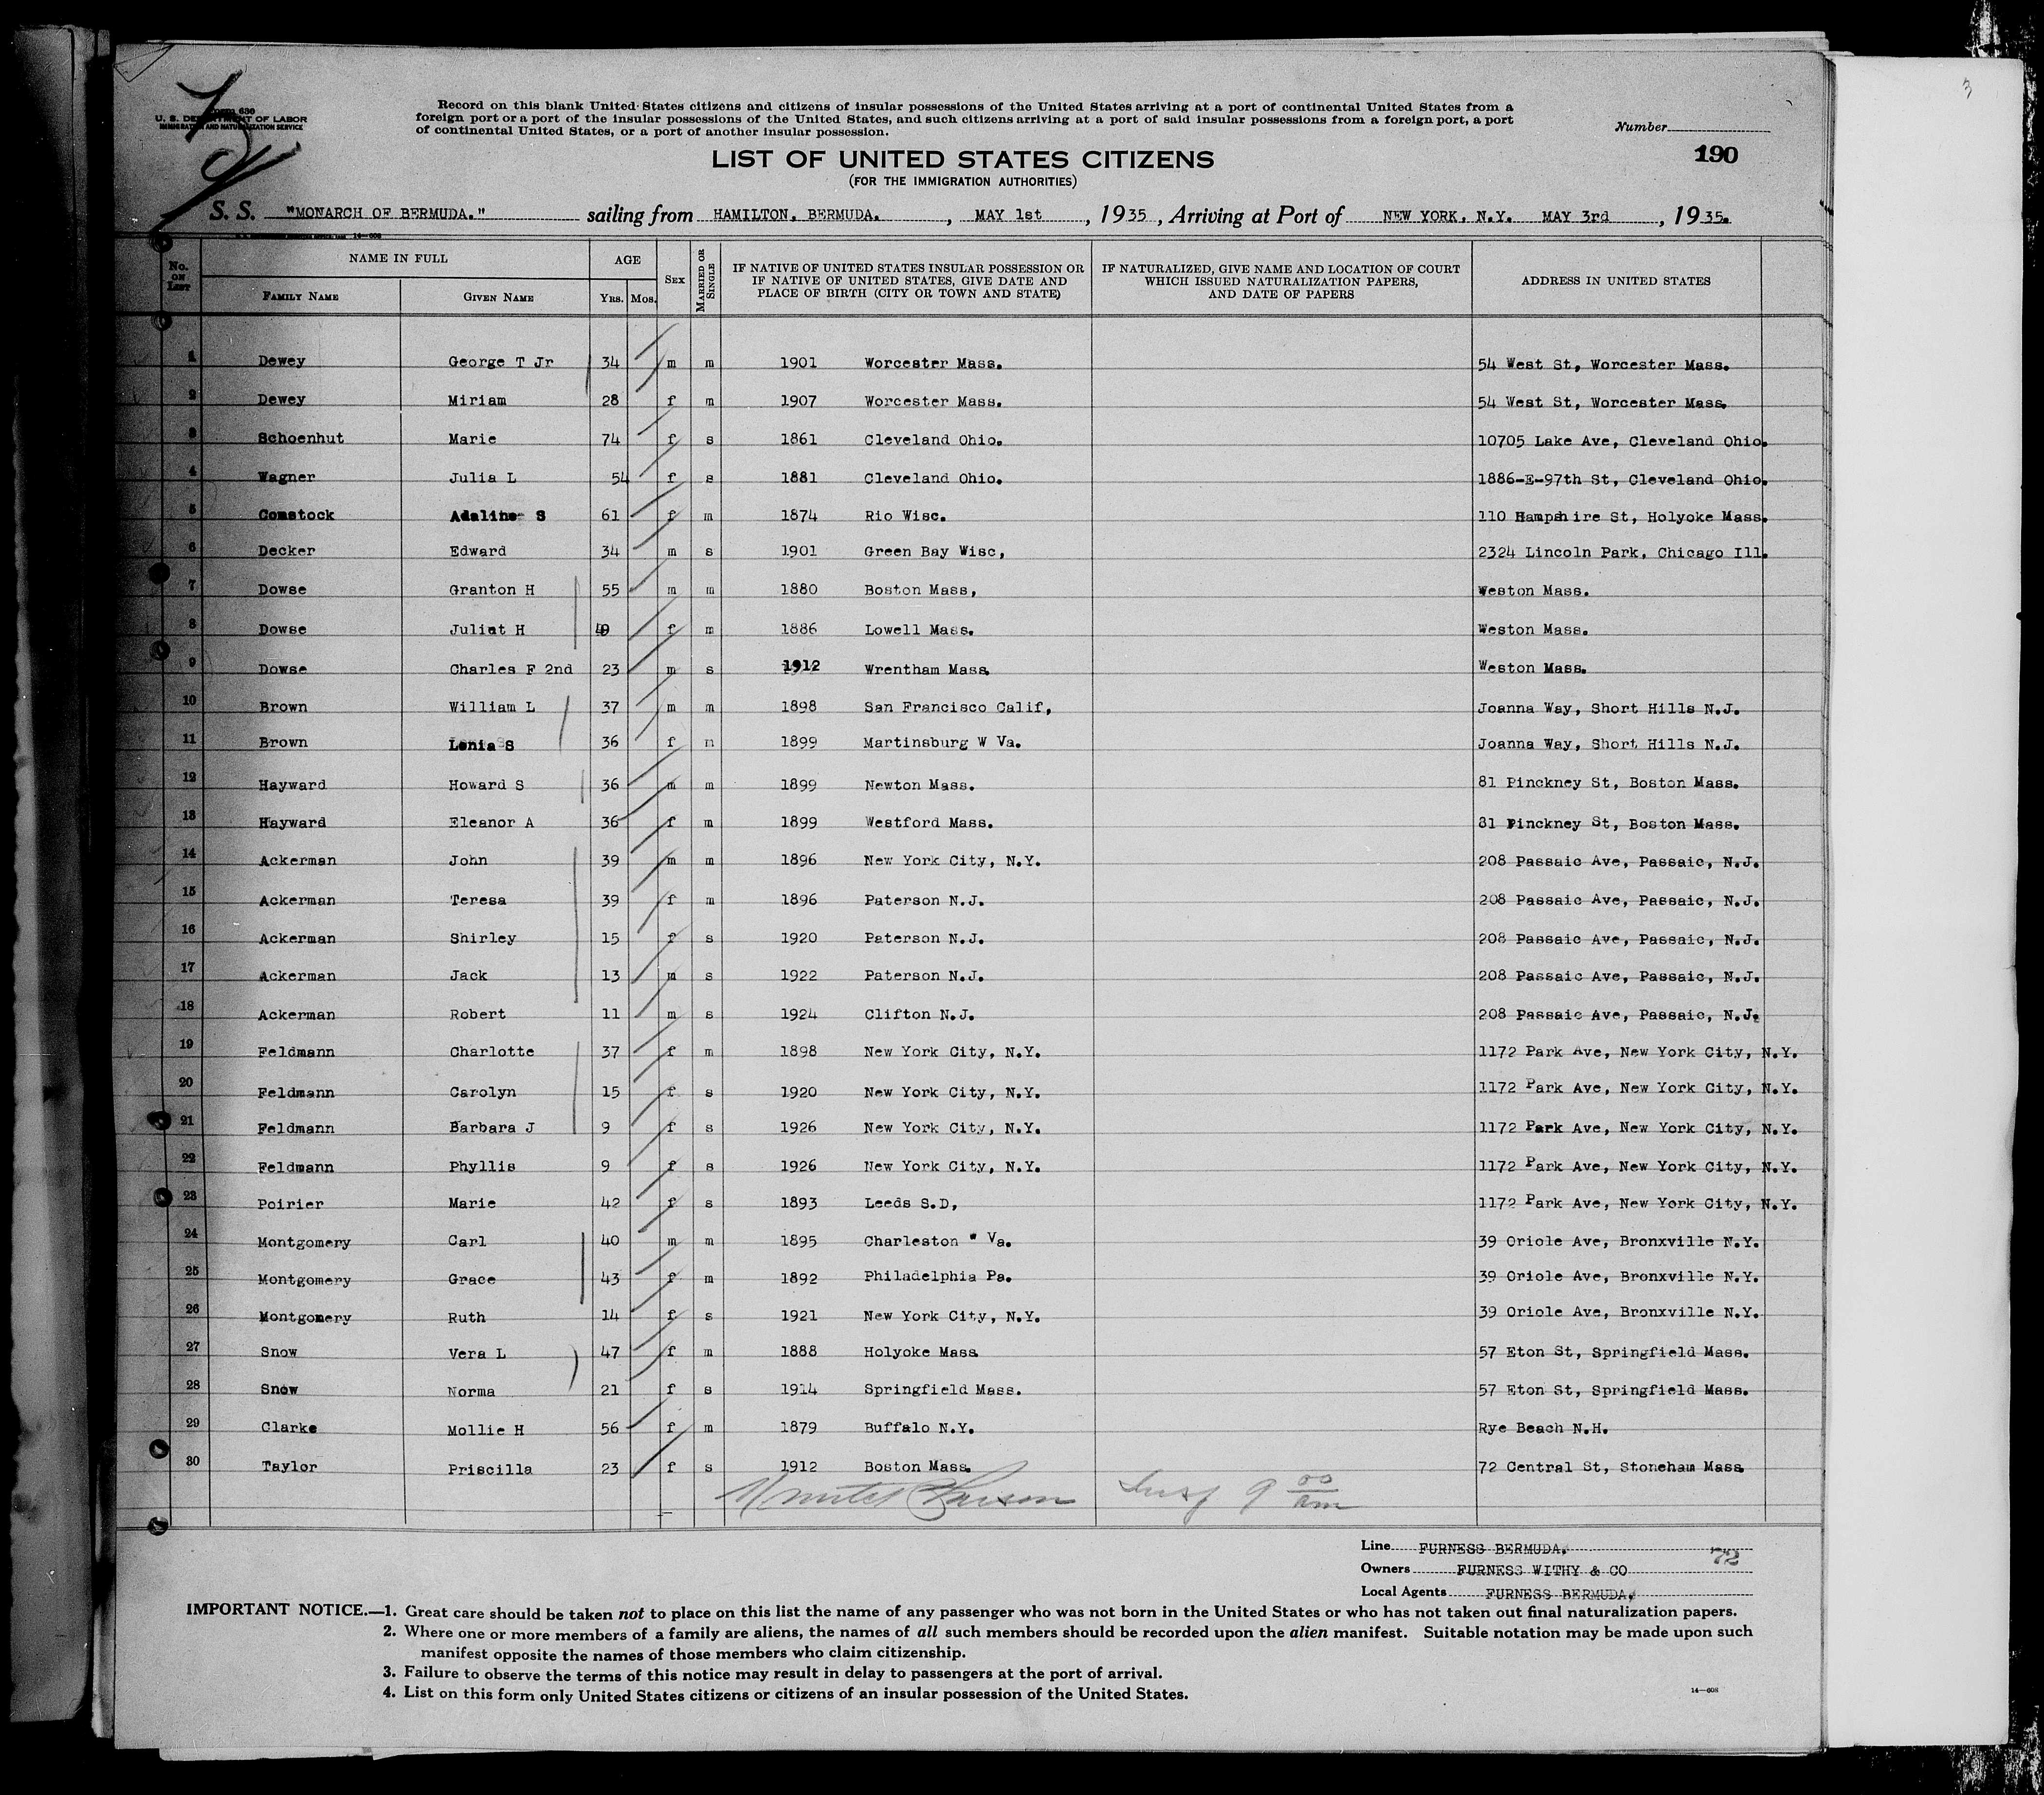 3
FORM 630
U. S. DEPARTMENT OF LABOR
IMMIGRATION AND NATURALIZATION SERVICE
Record on this blank United States citizens and citizens of insular possessions of the United States arriving at a port of continental United States from a
foreign port or a port of the insular possessions of the United States, and such citizens arriving at a port of said insular possessions from a foreign port, a port
of continental United States, or a port of another insular possession.
Number
190
LIST OF UNITED STATES CITIZENS
(FOR THE IMMIGRATION AUTHORITIES)
S. S. "MONARCH OF BERMUDA." sailing from HAMILTON, BERMUDA. , MAY 1st , 1935 , Arriving at Port of NEW YORK, N.Y. MAY 3rd , 1935.
14—608
No. ON LIST NAME IN FULL AGE SEX MARRIED OR SINGLE IF NATIVE OF UNITED STATES INSULAR POSSESSION OR IF NATIVE OF UNITED STATES, GIVE DATE AND PLACE OF BIRTH (CITY OR TOWN AND STATE) IF NATURALIZED, GIVE NAME AND LOCATION OF COURT WHICH ISSUED NATURALIZATION PAPERS, AND DATE OF PAPERS ADDRESS IN UNITED STATES
FAMILY NAME GIVEN NAME YRS. MOS.
1 Dewey George T Jr 34 m m 1901 Worcester Mass. 54 West St, Worcester Mass.
2 Dewey Miriam 28 f m 1907 Worcester Mass. 54 West St, Worcester Mass.
3 Schoenhut Marie 74 f s 1861 Cleveland Ohio. 10705 Lake Ave, Cleveland Ohio.
4 Wagner Julia L 54 f s 1881 Cleveland Ohio. 1886-E-97th St, Cleveland Ohio.
5 Comstock Adaline S 61 f m 1874 Rio Wisc. 110 Hampshire St, Holyoke Mass.
6 Decker Edward 34 m s 1901 Green Bay Wisc, 2324 Lincoln Park, Chicago Ill.
7 Dowse Granton H 55 m m 1880 Boston Mass, Weston Mass.
8 Dowse Juliet H 49 f m 1886 Lowell Mass. Weston Mass.
9 Dowse Charles F 2nd 23 m s 1912 Wrentham Mass. Weston Mass.
10 Brown William L 37 m m 1898 San Francisco Calif, Joanna Way, Short Hills N.J.
11 Brown Lenia S 36 f m 1899 Martinsburg W Va. Joanna Way, Short Hills N.J.
12 Hayward Howard S 36 m m 1899 Newton Mass. 81 Pinckney St, Boston Mass.
13 Hayward Eleanor A 36 f m 1899 Westford Mass. 81 Pinckney St, Boston Mass.
14 Ackerman John 39 m m 1896 New York City, N.Y. 208 Passaic Ave, Passaic, N.J.
15 Ackerman Teresa 39 f m 1896 Paterson N.J. 208 Passaic Ave, Passaic, N.J.
16 Ackerman Shirley 15 f s 1920 Paterson N.J. 208 Passaic Ave, Passaic, N.J.
17 Ackerman Jack 13 m s 1922 Paterson N.J. 208 Passaic Ave, Passaic, N.J.
18 Ackerman Robert 11 m s 1924 Clifton N.J. 208 Passaic Ave, Passaic, N.J.
19 Feldmann Charlotte 37 f m 1898 New York City, N.Y. 1172 Park Ave, New York City, N.Y.
20 Feldmann Carolyn 15 f s 1920 New York City, N.Y. 1172 Park Ave, New York City, N.Y.
21 Feldmann Barbara J 9 f s 1926 New York City, N.Y. 1172 Park Ave, New York City, N.Y.
22 Feldmann Phyllis 9 f s 1926 New York City, N.Y. 1172 Park Ave, New York City, N.Y.
23 Poirier Marie 42 f s 1893 Leeds S.D, 1172 Park Ave, New York City, N.Y.
24 Montgomery Carl 40 m m 1895 Charleston W Va. 39 Oriole Ave, Bronxville N.Y.
25 Montgomery Grace 43 f m 1892 Philadelphia Pa. 39 Oriole Ave, Bronxville N.Y.
26 Montgomery Ruth 14 f s 1921 New York City, N.Y. 39 Oriole Ave, Bronxville N.Y.
27 Snow Vera L 47 f m 1888 Holyoke Mass 57 Eton St, Springfield Mass.
28 Snow Norma 21 f s 1914 Springfield Mass. 57 Eton St, Springfield Mass.
29 Clarke Mollie H 56 f m 1879 Buffalo N.Y. Rye Beach N.H.
30 Taylor Priscilla 23 f s 1912 Boston Mass. 72 Central St, Stoneham Mass
Insp 9 00 am
Line FURNESS BERMUDA. 72
Owners FURNESS WITHY & CO
Local Agents FURNESS BERMUDA,
IMPORTANT NOTICE.—1. Great care should be taken not to place on this list the name of any passenger who was not born in the United States or who has not taken out final naturalization papers.
2. Where one or more members of a family are aliens, the names of all such members should be recorded upon the alien manifest. Suitable notation may be made upon such
manifest opposite the names of those members who claim citizenship.
3. Failure to observe the terms of this notice may result in delay to passengers at the port of arrival.
4. List on this form only United States citizens or citizens of an insular possession of the United States.
14—608